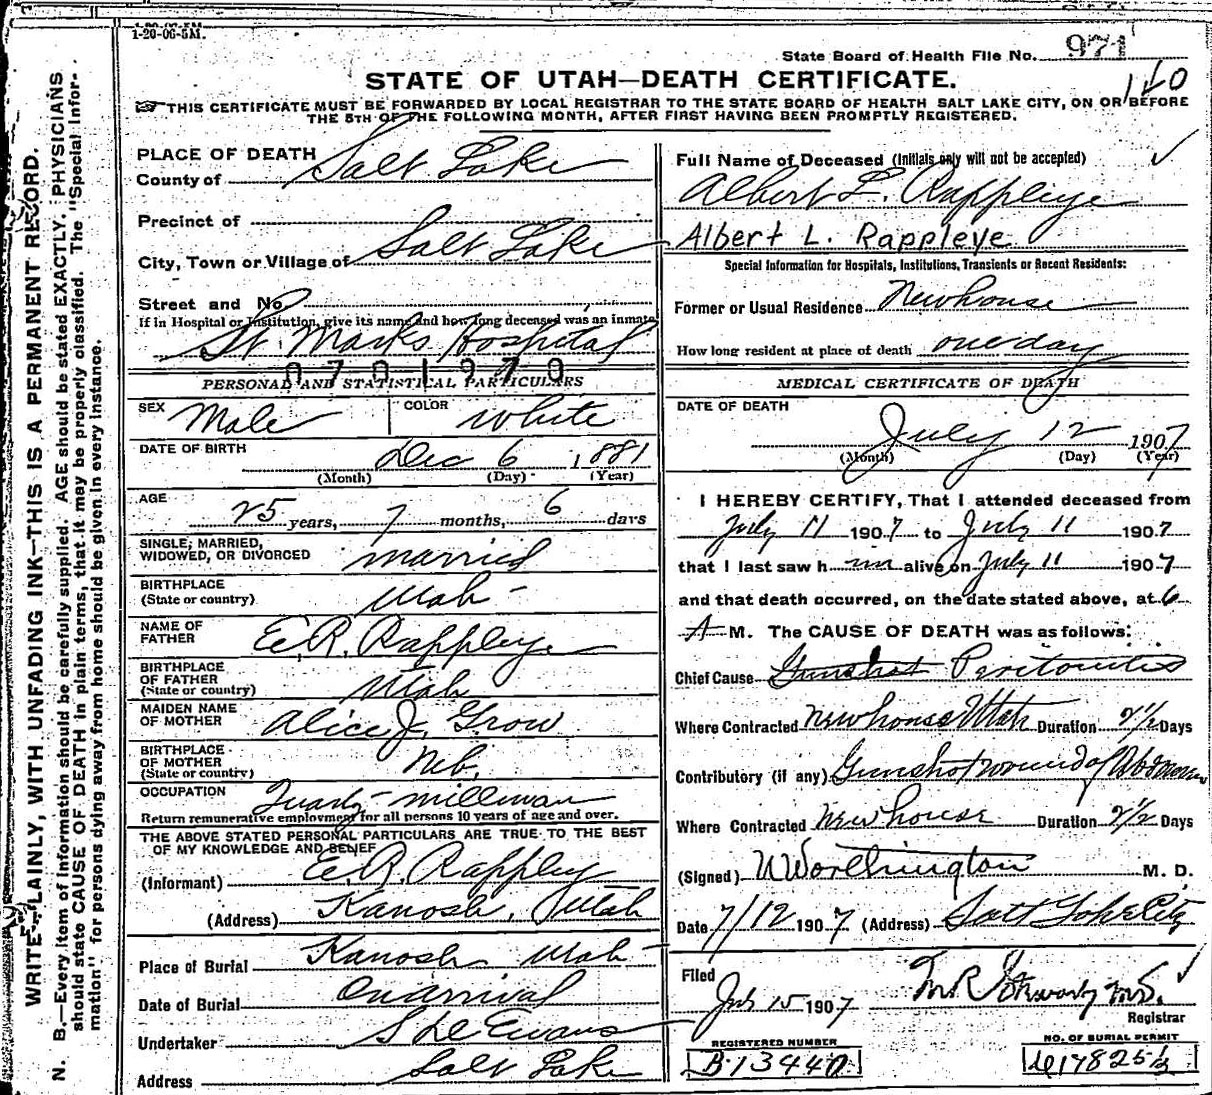 1-20-06-5M.
State Board of Health File No. 971
STATE OF UTAH—DEATH CERTIFICATE.
110
THIS CERTIFICATE MUST BE FORWARDED BY LOCAL REGISTRAR TO THE STATE BOARD OF HEALTH SALT LAKE CITY, ON OR BEFORE
THE 5TH OF THE FOLLOWING MONTH, AFTER FIRST HAVING BEEN PROMPTLY REGISTERED.
WRITE PLAINLY, WITH UNFADING INK—THIS IS A PERMANENT RECORD.
N. B.—Every item of information should be carefully supplied. AGE should be stated EXACTLY. PHYSICIANS
should state CAUSE OF DEATH in plain terms, that it may be properly classified. The "Special Infor-
mation" for persons dying away from home should be given in every instance.
PLACE OF DEATH
County of Salt Lake
Precinct of
City, Town or Village of Salt Lake
Street and No
If in Hospital or Institution, give its name and how long deceased was an inmate
St. Marks Hospital
0701970
PERSONAL AND STATISTICAL PARTICULARS
SEX Male COLOR White
DATE OF BIRTH Dec 6 1881
(Month) (Day) (Year)
AGE 25 years, 7 months, 6 days
SINGLE, MARRIED,
WIDOWED, OR DIVORCED married
BIRTHPLACE
(State or country) Utah
NAME OF
FATHER E.R. Rappleye
BIRTHPLACE
OF FATHER
(State or country) Utah
MAIDEN NAME
OF MOTHER Alice J. Grow
BIRTHPLACE
OF MOTHER
(State or country) Neb.
OCCUPATION Quartz-millman
Return remunerative employment for all persons 10 years of age and over.
THE ABOVE STATED PERSONAL PARTICULARS ARE TRUE TO THE BEST
OF MY KNOWLEDGE AND BELIEF
(Informant) E.R. Rappley
(Address) Kanosh, Utah
Place of Burial Kanosh Utah
Date of Burial On arrival
Undertaker S D Evans
Address Salt Lake
Full Name of Deceased (Initials only will not be accepted)
Albert L. Rappleye
Albert L. Rappleye
Special Information for Hospitals, Institutions, Transients or Recent Residents:
Former or Usual Residence Newhouse
How long resident at place of death one day
MEDICAL CERTIFICATE OF DEATH
DATE OF DEATH
July 12 1907
(Month) (Day) (Year)
I HEREBY CERTIFY, That I attended deceased from
July 11 1907 to July 11 1907
that I last saw h im alive on July 11 1907
and that death occurred, on the date stated above, at 6
A M. The CAUSE OF DEATH was as follows:
Chief Cause Gunshot Peritonitis
Where Contracted Newhouse Utah Duration 2 1/2 Days
Contributory (if any) Gunshot wound of Abdomen
Where Contracted Newhouse Duration 2 1/2 Days
(Signed) W Worthington M. D.
Date 7/12 1907 (Address) Salt Lake City
Filed
July 15 1907
Registrar
REGISTERED NUMBER
B.13440
NO. OF BURIAL PERMIT